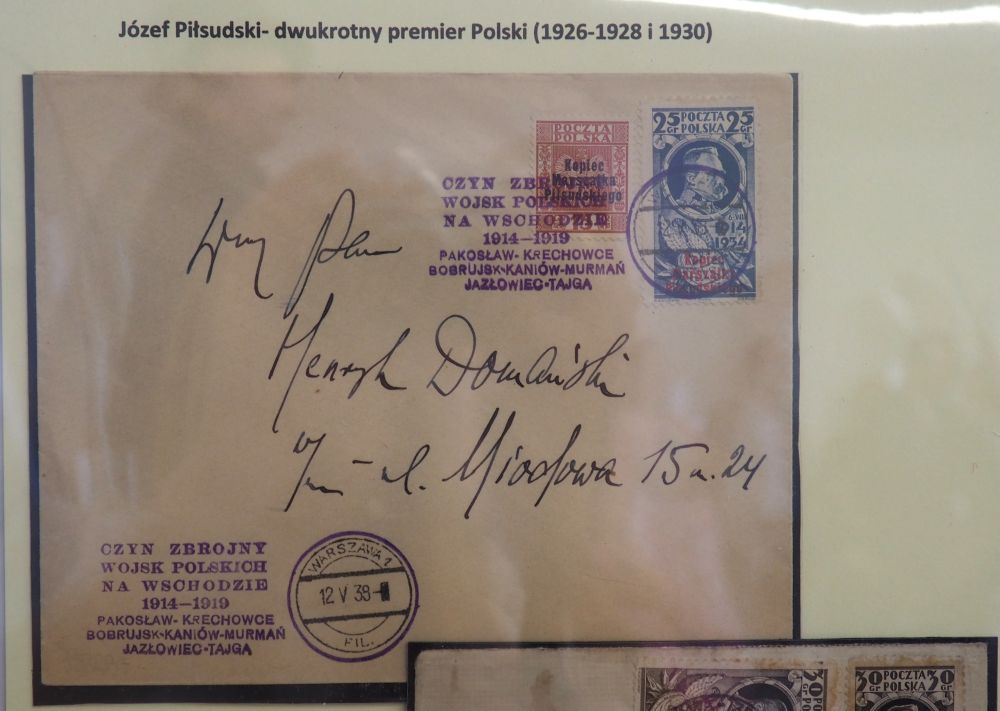 Józef Piłsudski- dwukrotny premier Polski (1926-1928 i 1930)
POCZTA
POLSKA
Kopiec
Marszałka
Piłsudskiego
15
25 POCZTA 25
GR POLSKA GR
6·VIII
1914
1934
Kopiec
Marszałka
Piłsudskiego
CZYN ZBROJNY
WOJSK POLSKICH
NA WSCHODZIE
1914-1919
PAKOSŁAW- KRECHOWCE
BOBRUJSK-KANIÓW-MURMAŃ
JAZŁOWIEC·TAJGA
Henryk Domański
ul. Miodowa 15 m. 24
CZYN ZBROJNY
WOJSK POLSKICH
NA WSCHODZIE
1914-1919
PAKOSŁAW- KRECHOWCE
BOBRUJSK-KANIÓW-MURMAŃ
JAZŁOWIEC·TAJGA
WARSZAWA 1
12 V 38
FIL.
30 POCZTA 30
GR POLSKA GR